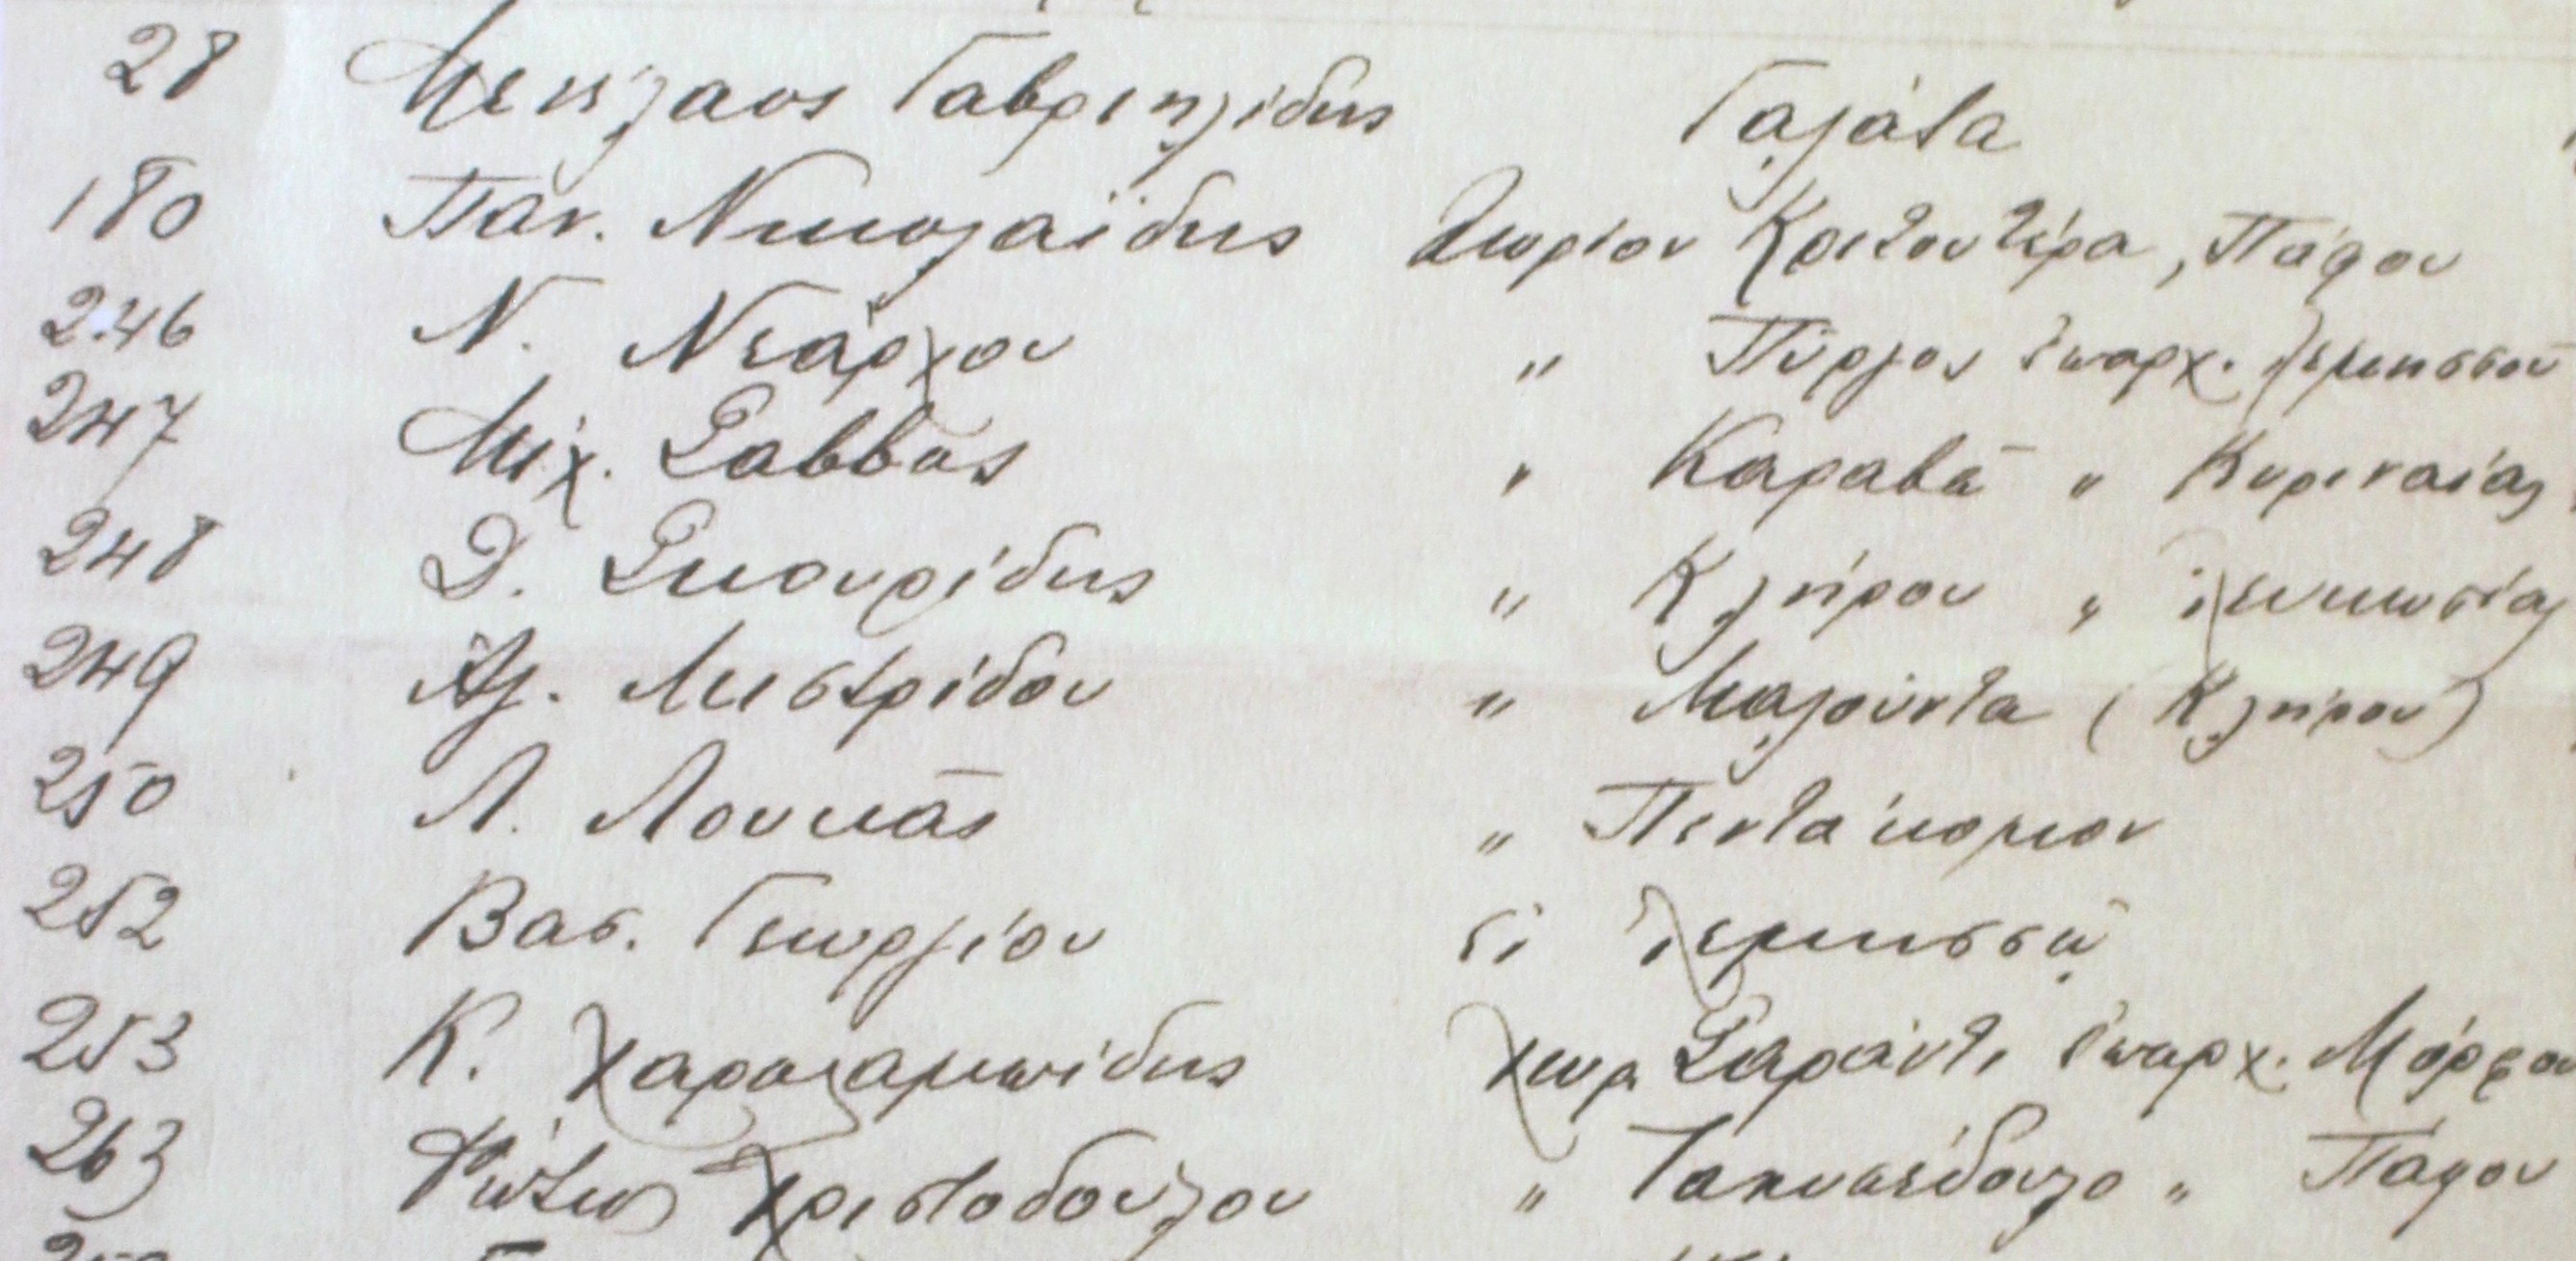 28 Μενέλαος Γαβριηλίδης Γαλάτα
180 Παν. Νικολαΐδης Χωρίον Κρίτου Τέρα, Πάφου
246 Ν. Νεάρχου " Πύργος ἐπαρχ. Λεμησσοῦ
247 Μιχ. Σάββας " Καραβᾶ " Κυρηναίας
248 Δ. Σκουρίδης " Κλήρου " Λευκωσίας
249 Ἀγ. Μιστρίδου " Μαλούντα (Κλήρου)
250 Λ. Λουκᾶς " Πεντάκομον
252 Βασ. Γεωργίου εἰ Λεμησσῷ
253 Κ. Χαραλαμπίδης χωρ. Σαράντι ἐπαρχ. Μόρφου
263 Χριστοδούλου " " Πάφου